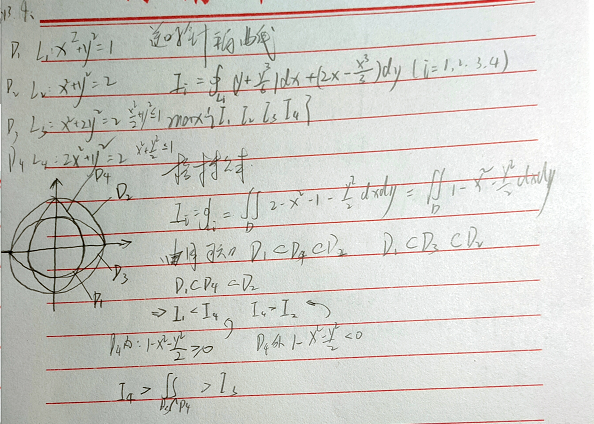 13 A.
D₁ L₁: x²+y²=1 逆时针 平面曲线
D₂ L₂: x²+y²=2 Iᵢ=∮_{Lᵢ}(y+y³/6)dx+(2x-x³/3)dy (i=1.2.3.4)
D₃ L₃: x²+2y²=2 x²/2+y²≤1 max{I₁ I₂ I₃ I₄}
D₄ L₄: 2x²+y²=2 x²+y²/2≤1
D₄ D₂ 格林公式
Iᵢ=∮_{Lᵢ}=∬_D 2-x²-1-y²/2 dxdy=∬_D 1-x²-y²/2 dxdy
由图可知 D₁⊂D₄⊂D₂ D₁⊂D₃⊂D₂
D₃ D₁ D₁⊂D₄⊂D₂
⇒ I₁<I₄, I₄>I₂
D₄内: 1-x²-y²/2≥0 D₄外 1-x²-y²/2<0
I₄>∬_{D₃∩D₄}>I₃